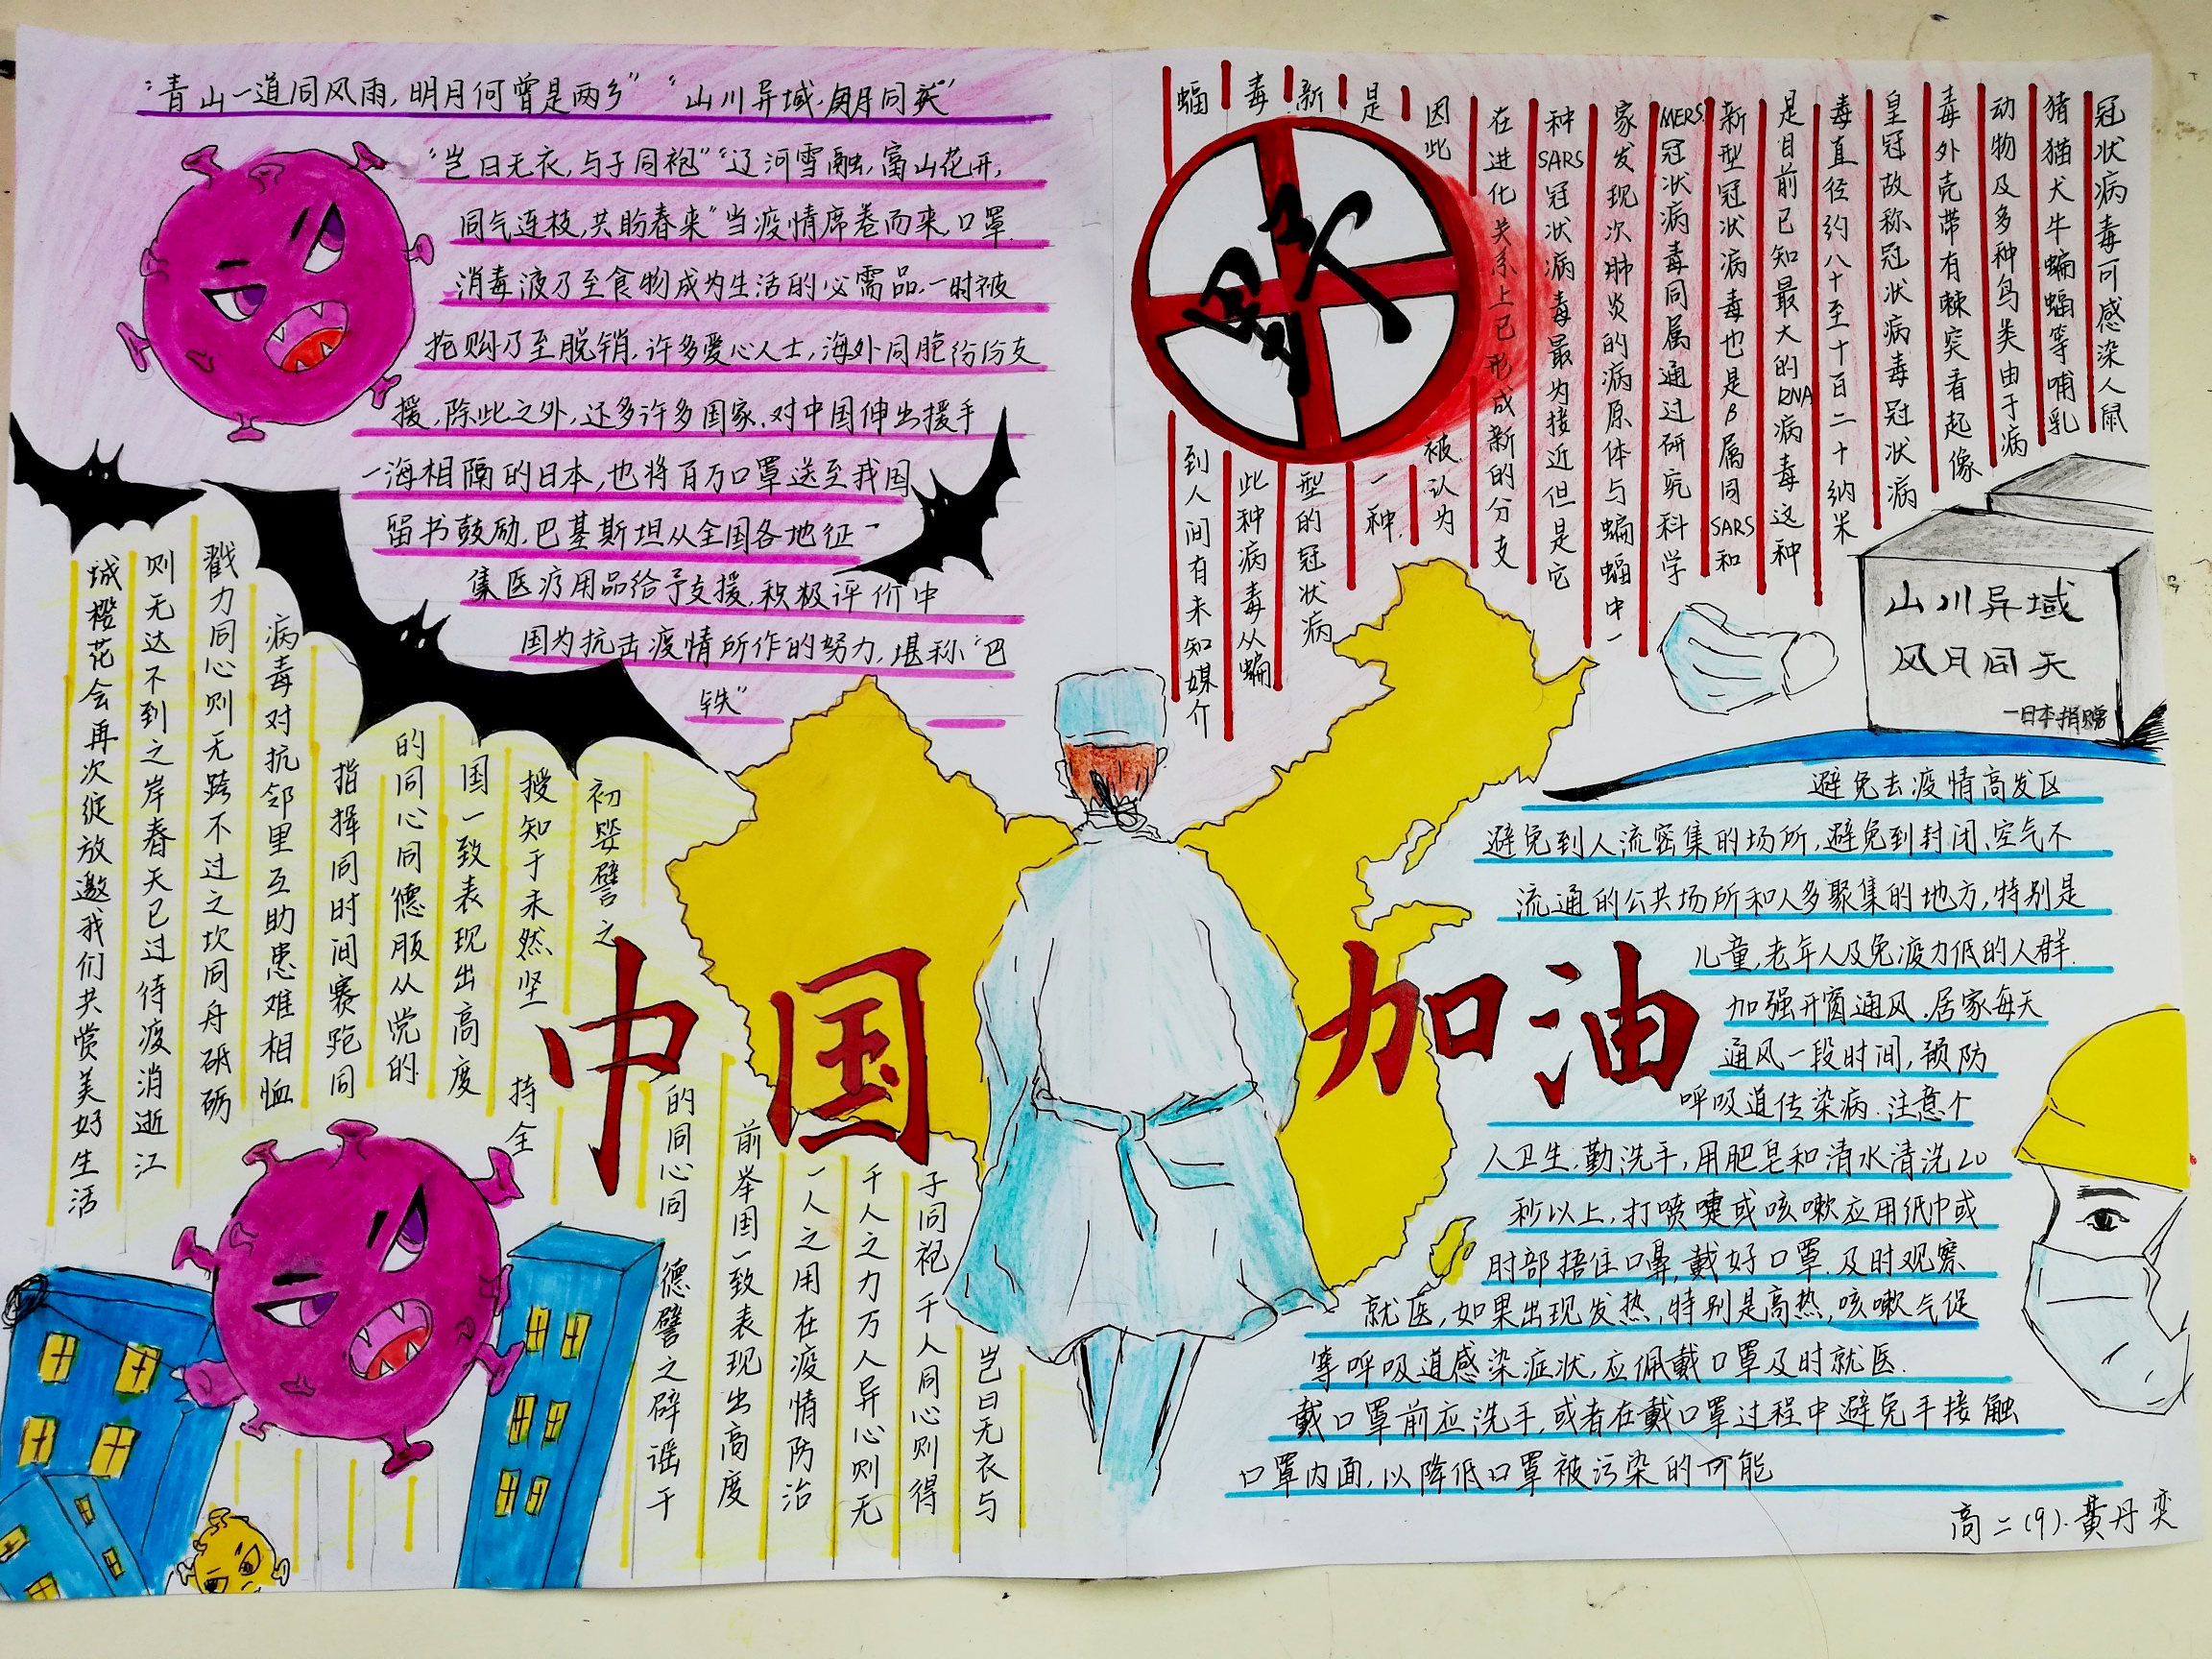 “青山一道同风雨，明月何曾是两乡”“山川异域，风月同天”
“岂曰无衣，与子同袍”“辽河雪融，富山花开，
同气连枝，共盼春来”当疫情席卷而来，口罩
消毒液乃至食物成为生活的必需品，一时被
抢购乃至脱销，许多爱心人士，海外同胞纷纷支
援，除此之外，还多许多国家，对中国伸出援手
一海相隔的日本，也将百万口罩送至我国
留书鼓励，巴基斯坦从全国各地征
集医疗用品给予支援，积极评价中
国为抗击疫情所作的努力，堪称“巴
铁”
冠状病毒可感染人鼠
猪猫犬牛蝙蝠等哺乳
动物及多种鸟类由于病
毒外壳带有棘突看起像
皇冠故称冠状病毒冠状病
毒直径约八十至十百二十纳米
是目前已知最大的RNA病毒这种
新型冠状病毒也是β属同SARS和
MERS冠状病毒同属通过研究科学
家发现次肺炎的病原体与蝙蝠中一
种SARS冠状病毒最为接近但是它
在进化关系上已形成新的分支
因此被认为
是一种
新型的冠状病
毒此种病毒从蝙
蝠到人间有未知媒介
野
山川异域
风月同天
一日本捐赠
岂曰无衣与
子同袍千人同心则得
千人之力万人异心则无
一人之用在疫情防治
前举国一致表现出高度
的同心同德譬之辟谣于
初婴譬之
授知于未然坚持全
国一致表现出高度
的同心同德服从党的
指挥同时间赛跑同
病毒对抗邻里互助患难相恤
戮力同心则无跨不过之坎同舟砥砺
则无达不到之岸春天已过待疫消逝江
城樱花会再次绽放邀我们共赏美好生活
中国加油
避免去疫情高发区
避免到人流密集的场所，避免到封闭、空气不
流通的公共场所和人多聚集的地方，特别是
儿童，老年人及免疫力低的人群.
加强开窗通风.居家每天
通风一段时间，预防
呼吸道传染病.注意个
人卫生，勤洗手，用肥皂和清水清洗20
秒以上，打喷嚏或咳嗽应用纸巾或
肘部捂住口鼻，戴好口罩.及时观察
就医，如果出现发热，特别是高热，咳嗽气促
等呼吸道感染症状，应佩戴口罩及时就医.
戴口罩前应洗手，或者在戴口罩过程中避免手接触
口罩内面，以降低口罩被污染的可能
高二(9).黄丹奕